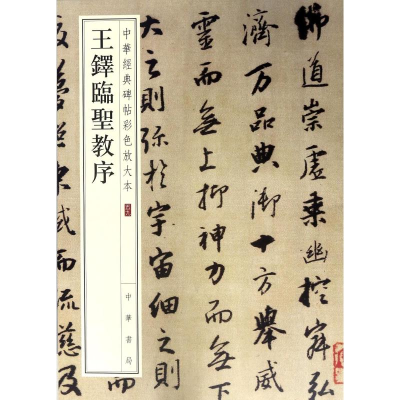 佛道崇虛乘幽控寂弘
濟万品典御十方舉威
靈而無上抑神力而無下
大之則弥於宇宙細之則
中華經典碑帖彩色放大本
中華書局
王鐸臨聖教序
東域而流慈及